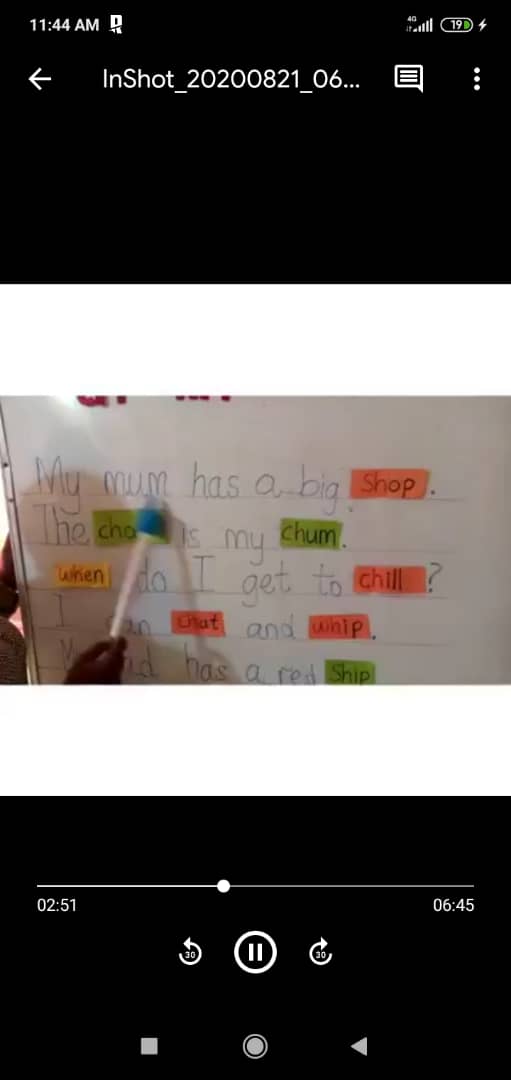 11:44 AM
4G
19
InShot_20200821_06...
My mum has a big Shop.
The is my chum.
when do I get to chill?
I chat and whip.
has a red Ship
02:51
06:45
30
30